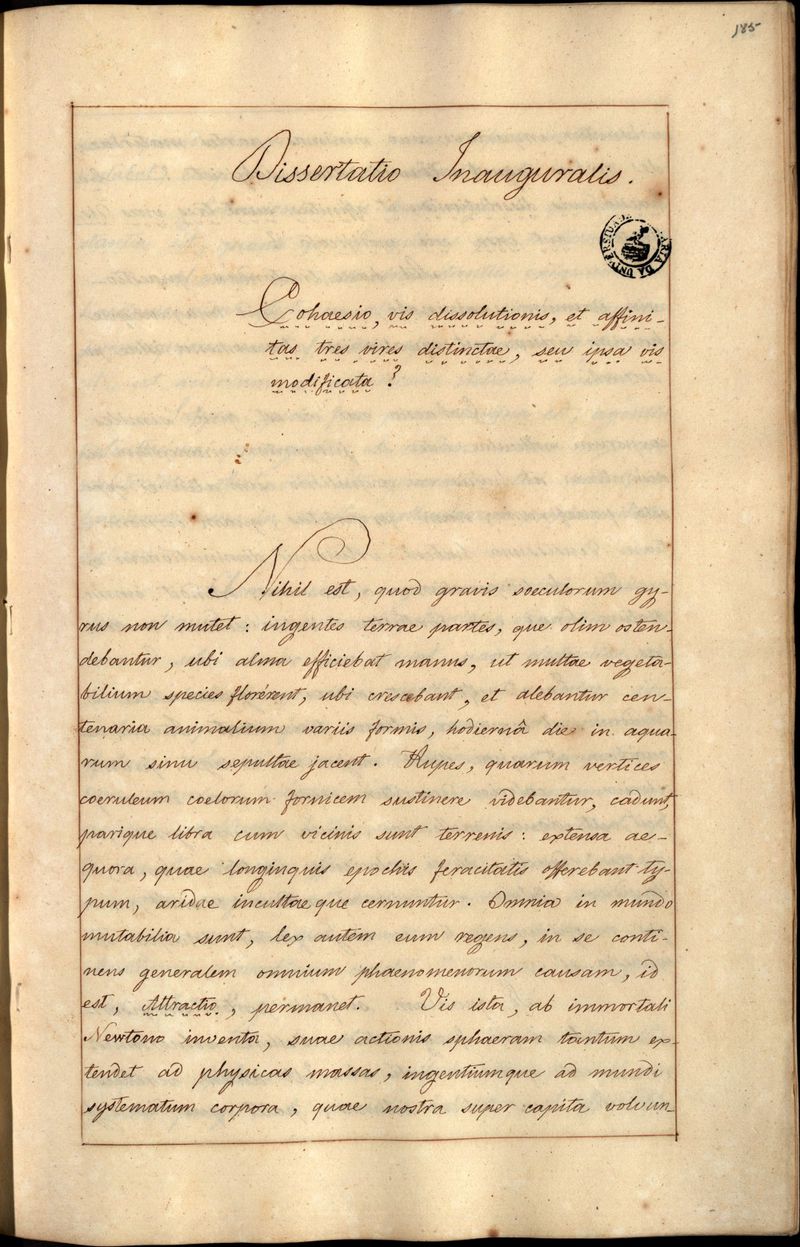 185
Dissertatio Inauguralis.
Cohaesio, vis dissolutionis, et affini-
tas tres vires distinctae, seu ipsa vis
modificata?
Nihil est, quod gravis soeculorum gy-
rus non mutet: ingentes terrae partes, que olim osten-
debantur, ubi alma efficiebat manus, ut multae vegeta-
bilium species florérent, ubi crescebant, et alebantur cen-
tenaria animalium variis formis, hodiernâ die in aqua-
rum sinu sepultae jacent. Rupes, quarum vertices
coeruleum coelorum fornicem sustinere videbantur, cadunt,
parique libra cum vicinis sunt terrenis: extensa ae-
quora, quae longinquis epochis feracitatis offerebant ty-
pum, aridae incultaeque cernuntur. Omnia in mundo
mutabilia sunt, lex autem eum regens, in se conti-
nens generalem omnium phaenomenorum causam, id
est, Attractio, permanet. Vis ista, ab immortali
Newtono inventa, suae actionis sphaeram tantum ex-
tendet ad physicas massas, ingentiumque ad mundi
systematum corpora, quae nostra super capita volvun-